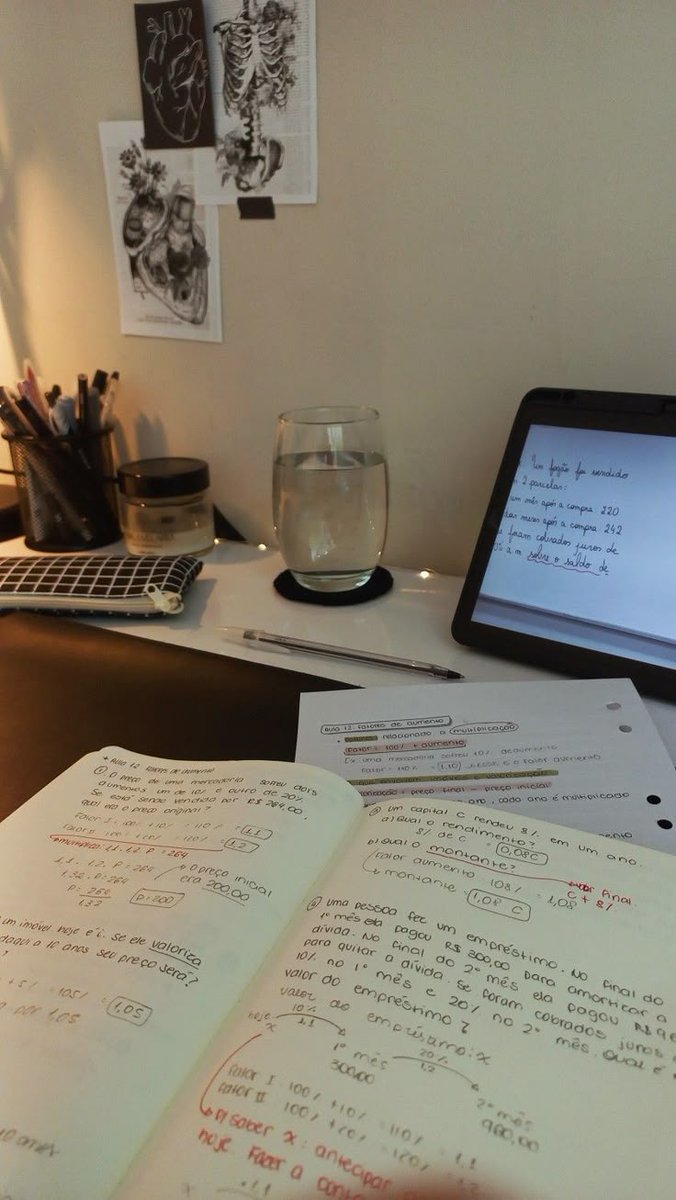 Um fogão foi vendido
2 parcelas:
um mês após a compra 220
meses após a compra 242
foram cobrados juros de
a m sobre o saldo de
Aula 12. Fatores de aumento
relacionado a multiplicação
Fator = 100% + aumento
Ex: uma mercadoria sofreu 10% de aumento
= preço final - preço inicial
ano, cada ano é multiplicado
+ Aula 12 Fatores de aumento
① O preço de uma mercadoria sofreu dois
aumentos um de 10% e outro de 20%.
Se está sendo vendida por R$ 264,00,
qual era o preço original?
Fator I = 100% + 10% = 110% = 1.1
Fator II = 100% + 20% = 120% = 1.2
1.1 . 1.2 . P = 264
1.1 . 1.2 . P = 264
1.32 . P = 264
P = 264
1.32
P = 200
O preço inicial
era 200,00
um imóvel hoje é i. Se ele valoriza
daqui a 10 anos seu preço será?
+ 5% = 105% = 1,05
por 1,05
um capital c rendeu 8% em um ano.
a) Qual o rendimento?
8% de C = 0,08C
b) Qual o montante?
Fator aumento 108% = 1,08
montante = 1,08 C
valor final
C + 8%
uma pessoa fez um empréstimo. No final do
1º mês ela pagou R$ 300,00 para amortizar a
dívida. No final do 2º mês ela pagou R$ 96
para quitar a dívida. Se foram cobrados juros
10% no 1º mês e 20% no 2º mês. Qual é
valor do empréstimo?
valor do empréstimo: x
hoje
x
10%
1.1
1º mês
300,00
20%
1.2
2º mês
960,00
Fator I = 100% + 10% = 110% = 1.1
Fator II = 100% + 20% = 120% = 1.2
P/ saber x: antecipar
hoje. Fazer a conta
x
1.1